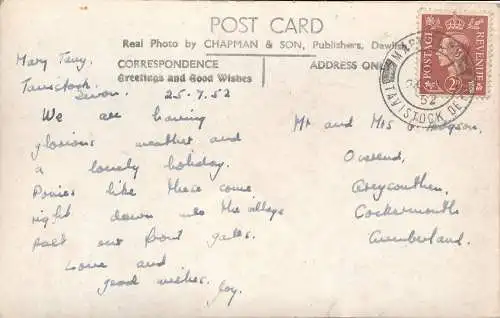 POST CARD
Real Photo by CHAPMAN & SON, Publishers, Dawlish
CORRESPONDENCE
ADDRESS ONLY
Greetings and Good Wishes
Mary Tavy,
Tavistock,
Devon.
25.7.52
We are having
glorious weather and
a lovely holiday.
Ponies like these come
right down into the village
past our front gates.
Love and
good wishes.
Joy.
Mr and Mrs J. Hodgson,
Overend,
Greysouthen,
Cockermouth
Cumberland.
POSTAGE
REVENUE
52
TAVISTOCK DEVON